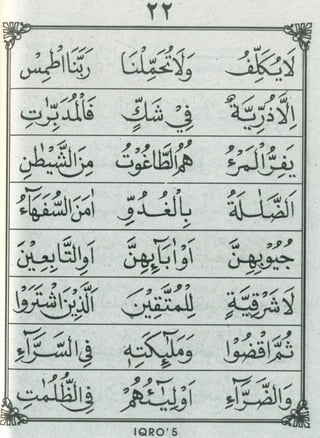 ٢٢
لَا يُكَلِّفُ وَلَا تُحَمِّلْنَا رَبَّنَا اطْمِسْ
اِلَّا ذُرِّيَّةٌ فِيْ شَكٍّ فَالْمُدَبِّرٰتِ
يَفِرُّ الْمَرْءُ هُمُ الطَّاغُوْتُ مِنَ الشَّيْطٰنِ
اَلضَّلٰلَةُ بِالْغُدُوِّ اٰمَنَ السُّفَهَآءُ
جُيُوْبِهِنَّ اَوْ اٰبَآئِهِنَّ اَوِ التَّابِعِيْنَ
لَا شَرْقِيَّةٍ لِلْمُتَّقِيْنَ اَلَّذِيْنَ اشْتَرَوُا
ثُمَّ اقْضُوْا وَمَلٰٓئِكَتِهٖ فِى السَّرَّآءِ
وَالضَّرَّآءِ اَوْلِيٰٓئُهُمْ فِى الظُّلُمٰتِ
IQRO'5